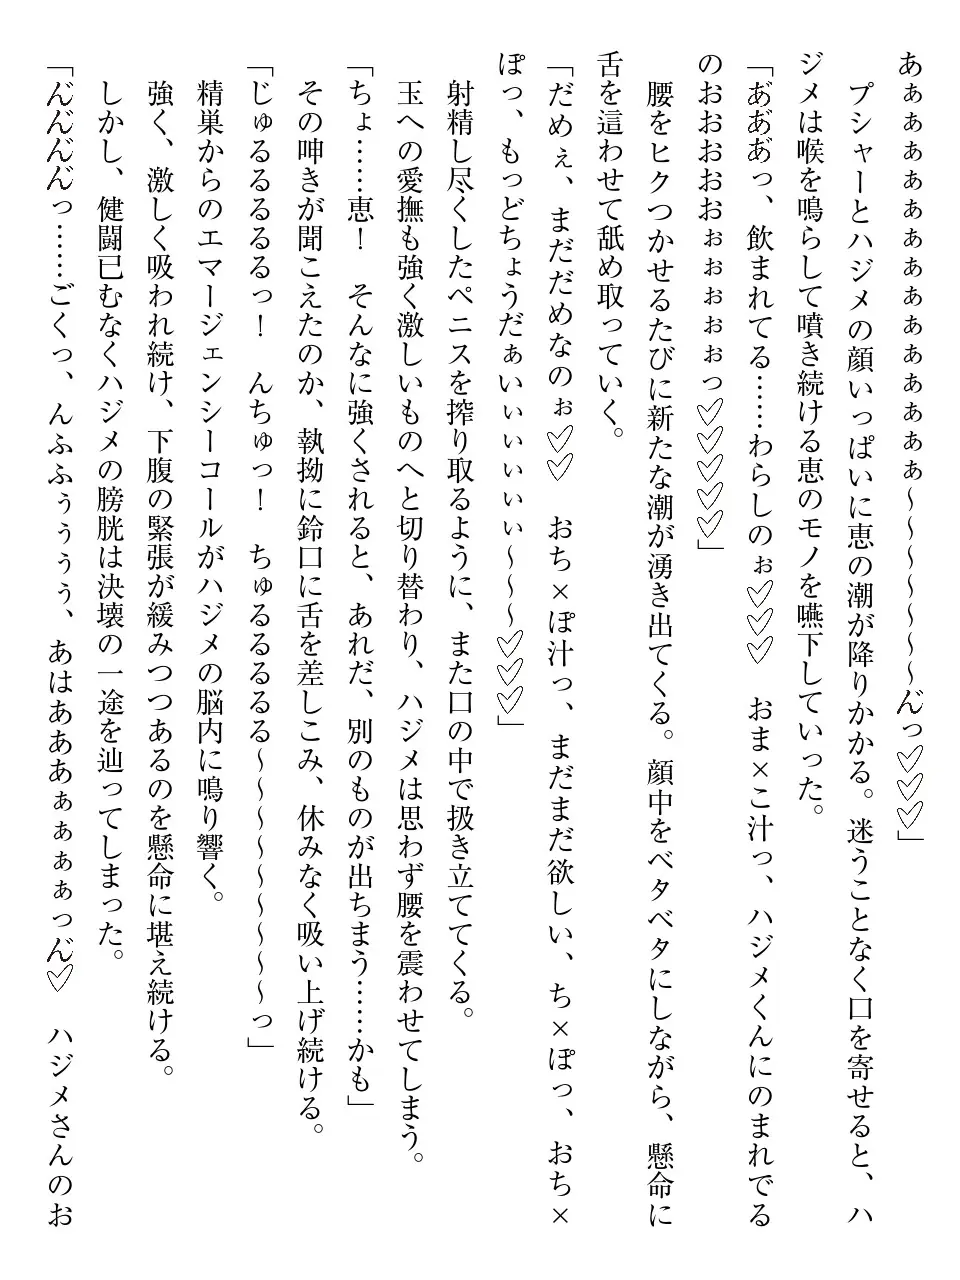 あぁぁぁぁぁぁぁぁぁぁぁぁぁぁ～～～～～～～ん゛っ♡♡♡」
　プシャーとハジメの顔いっぱいに恵の潮が降りかかる。迷うことなく口を寄せると、ハ
ジメは喉を鳴らして噴き続ける恵のモノを嚥下していった。
「あ゛あ゛あ゛っ、飲まれてる……わらしのぉ♡♡♡　おま×こ汁っ、ハジメくんにのまれでる
のおおおおおぉぉぉぉぉっ♡♡♡♡♡」
　腰をヒクつかせるたびに新たな潮が湧き出てくる。顔中をベタベタにしながら、懸命に
舌を這わせて舐め取っていく。
「だめぇ、まだだめなのぉ♡♡　おち×ぽ汁っ、まだまだ欲しい、ち×ぽっ、おち×
ぽっ、もっどちょうだぁいぃぃぃぃぃ～～～♡♡♡」
　射精し尽くしたペニスを搾り取るように、また口の中で扱き立ててくる。
　玉への愛撫も強く激しいものへと切り替わり、ハジメは思わず腰を震わせてしまう。
「ちょ……恵！　そんなに強くされると、あれだ、別のものが出ちまう……かも」
　その呻きが聞こえたのか、執拗に鈴口に舌を差しこみ、休みなく吸い上げ続ける。
「じゅるるるるるっ！　んちゅっ！　ちゅるるるるる～～～～～～～～～っ」
　精巣からのエマージェンシーコールがハジメの脳内に鳴り響く。
　強く、激しく吸われ続け、下腹の緊張が緩みつつあるのを懸命に堪え続ける。
　しかし、健闘已むなくハジメの膀胱は決壊の一途を辿ってしまった。
「ん゛ん゛ん゛ん゛っ……ごくっ、んふふぅぅぅ、あはあああぁぁぁぁっん゛♡　ハジメさんのお